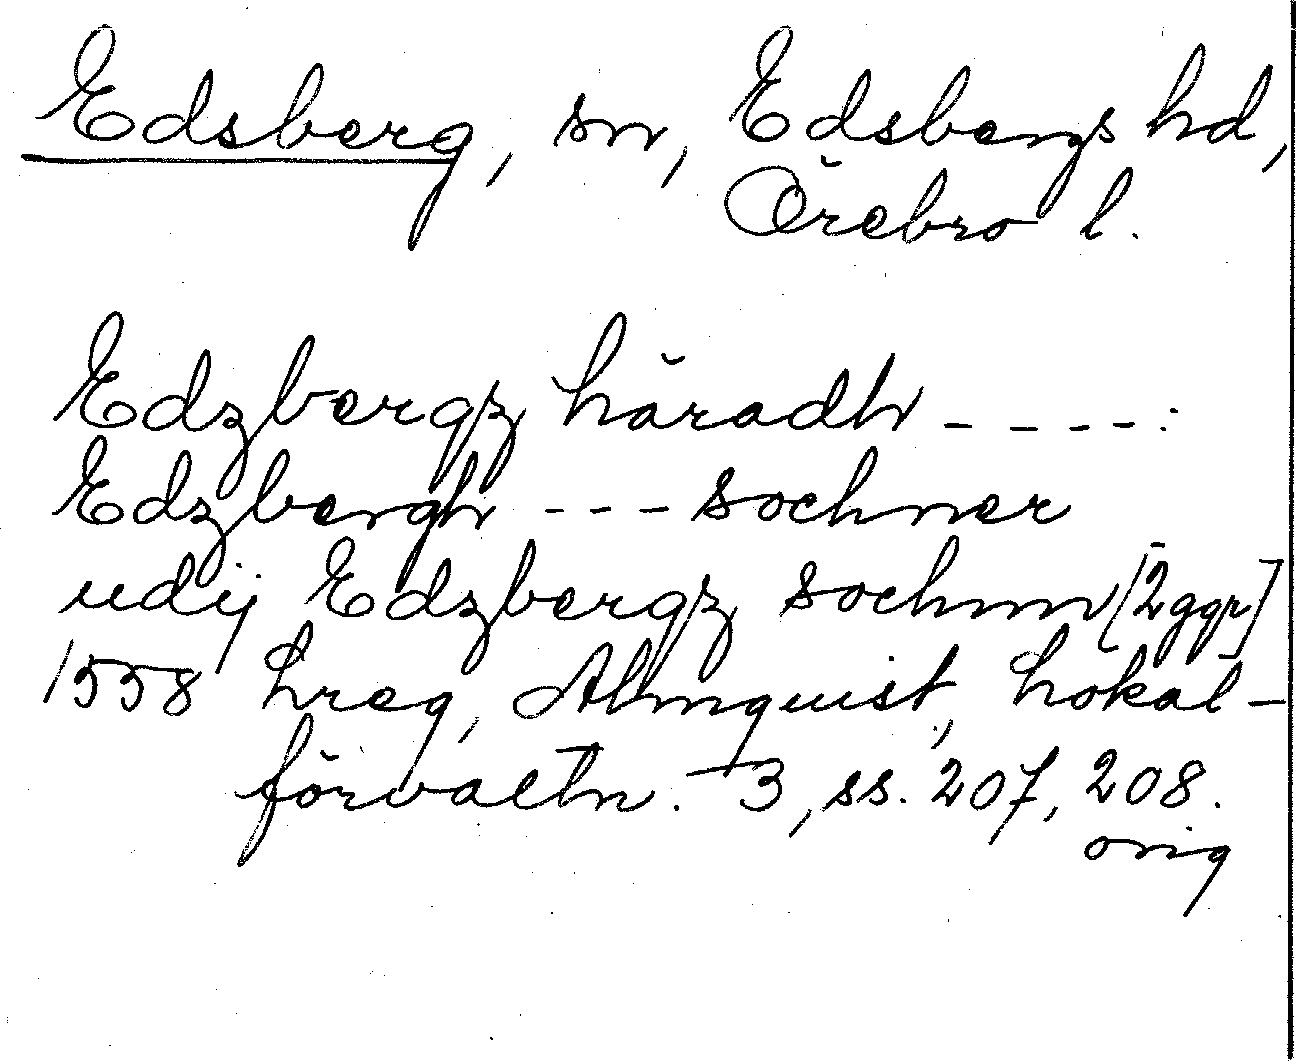 Edsberg, sn, Edsbergs hd,
Örebro l.
Edzbergz häradh - - - - :
Edzbergh - - - sochner
udij Edzbergz sochnn [2 ggr]
1558 Lreg, Almquist, Lokal-
förvaltn. 3, ss. 207, 208.
orig